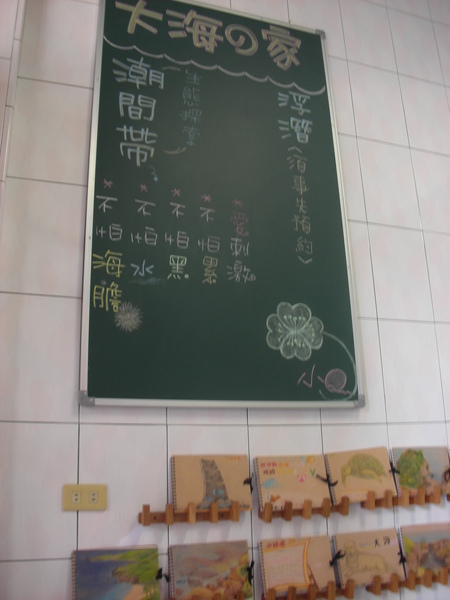 大海の家
浮潛(須事先預約)
生態探索
潮間帶
*愛刺激
*不怕累
*不怕黑
*不怕水
*不怕海膽
小
大海